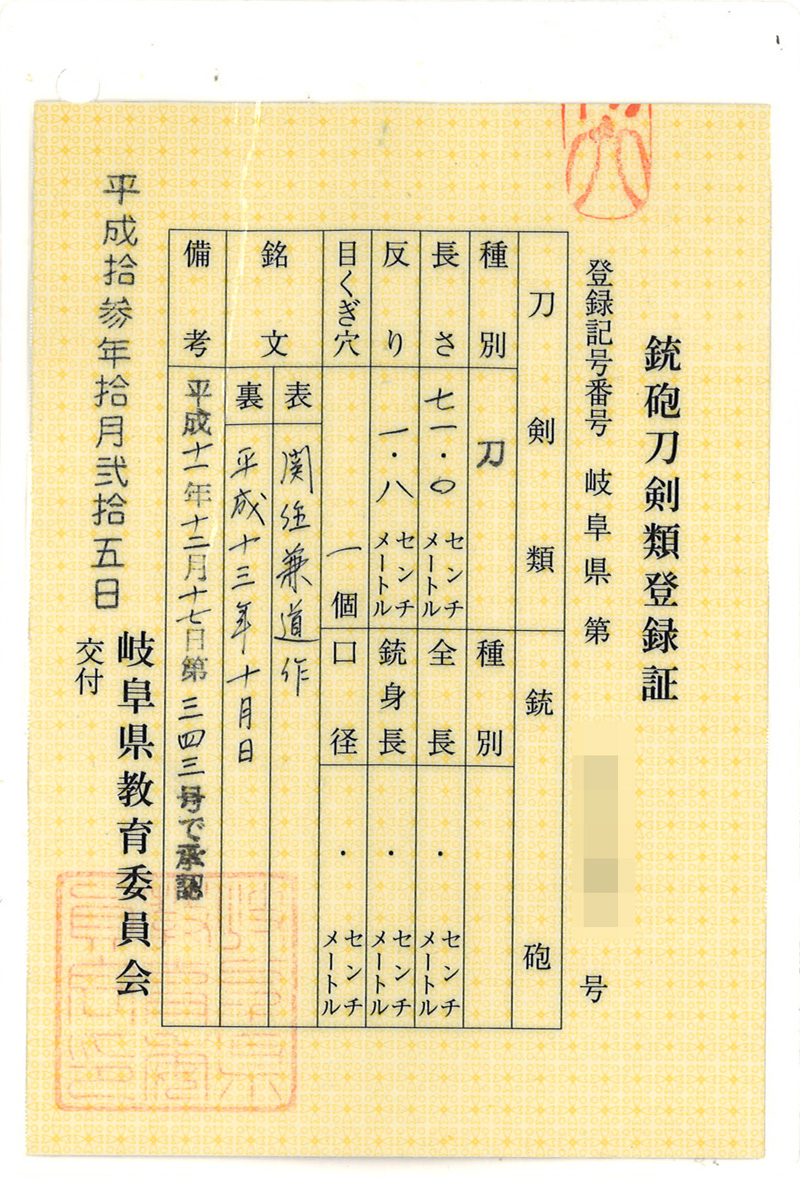 銃砲刀剣類登録証
登録記号番号 岐阜県 第 号
刀剣類 銃砲
種別 刀 種別
長さ 七一・〇 センチメートル 全長 ・ センチメートル
反り 一・八 センチメートル 銃身長 ・ センチメートル
目くぎ穴 一個 口径 ・ センチメートル
銘文 表 関住兼道作
裏 平成十三年十月日
備考 平成十一年十二月十七日第三四三号で承認
平成拾参年拾月弐拾五日
岐阜県教育委員会
交付